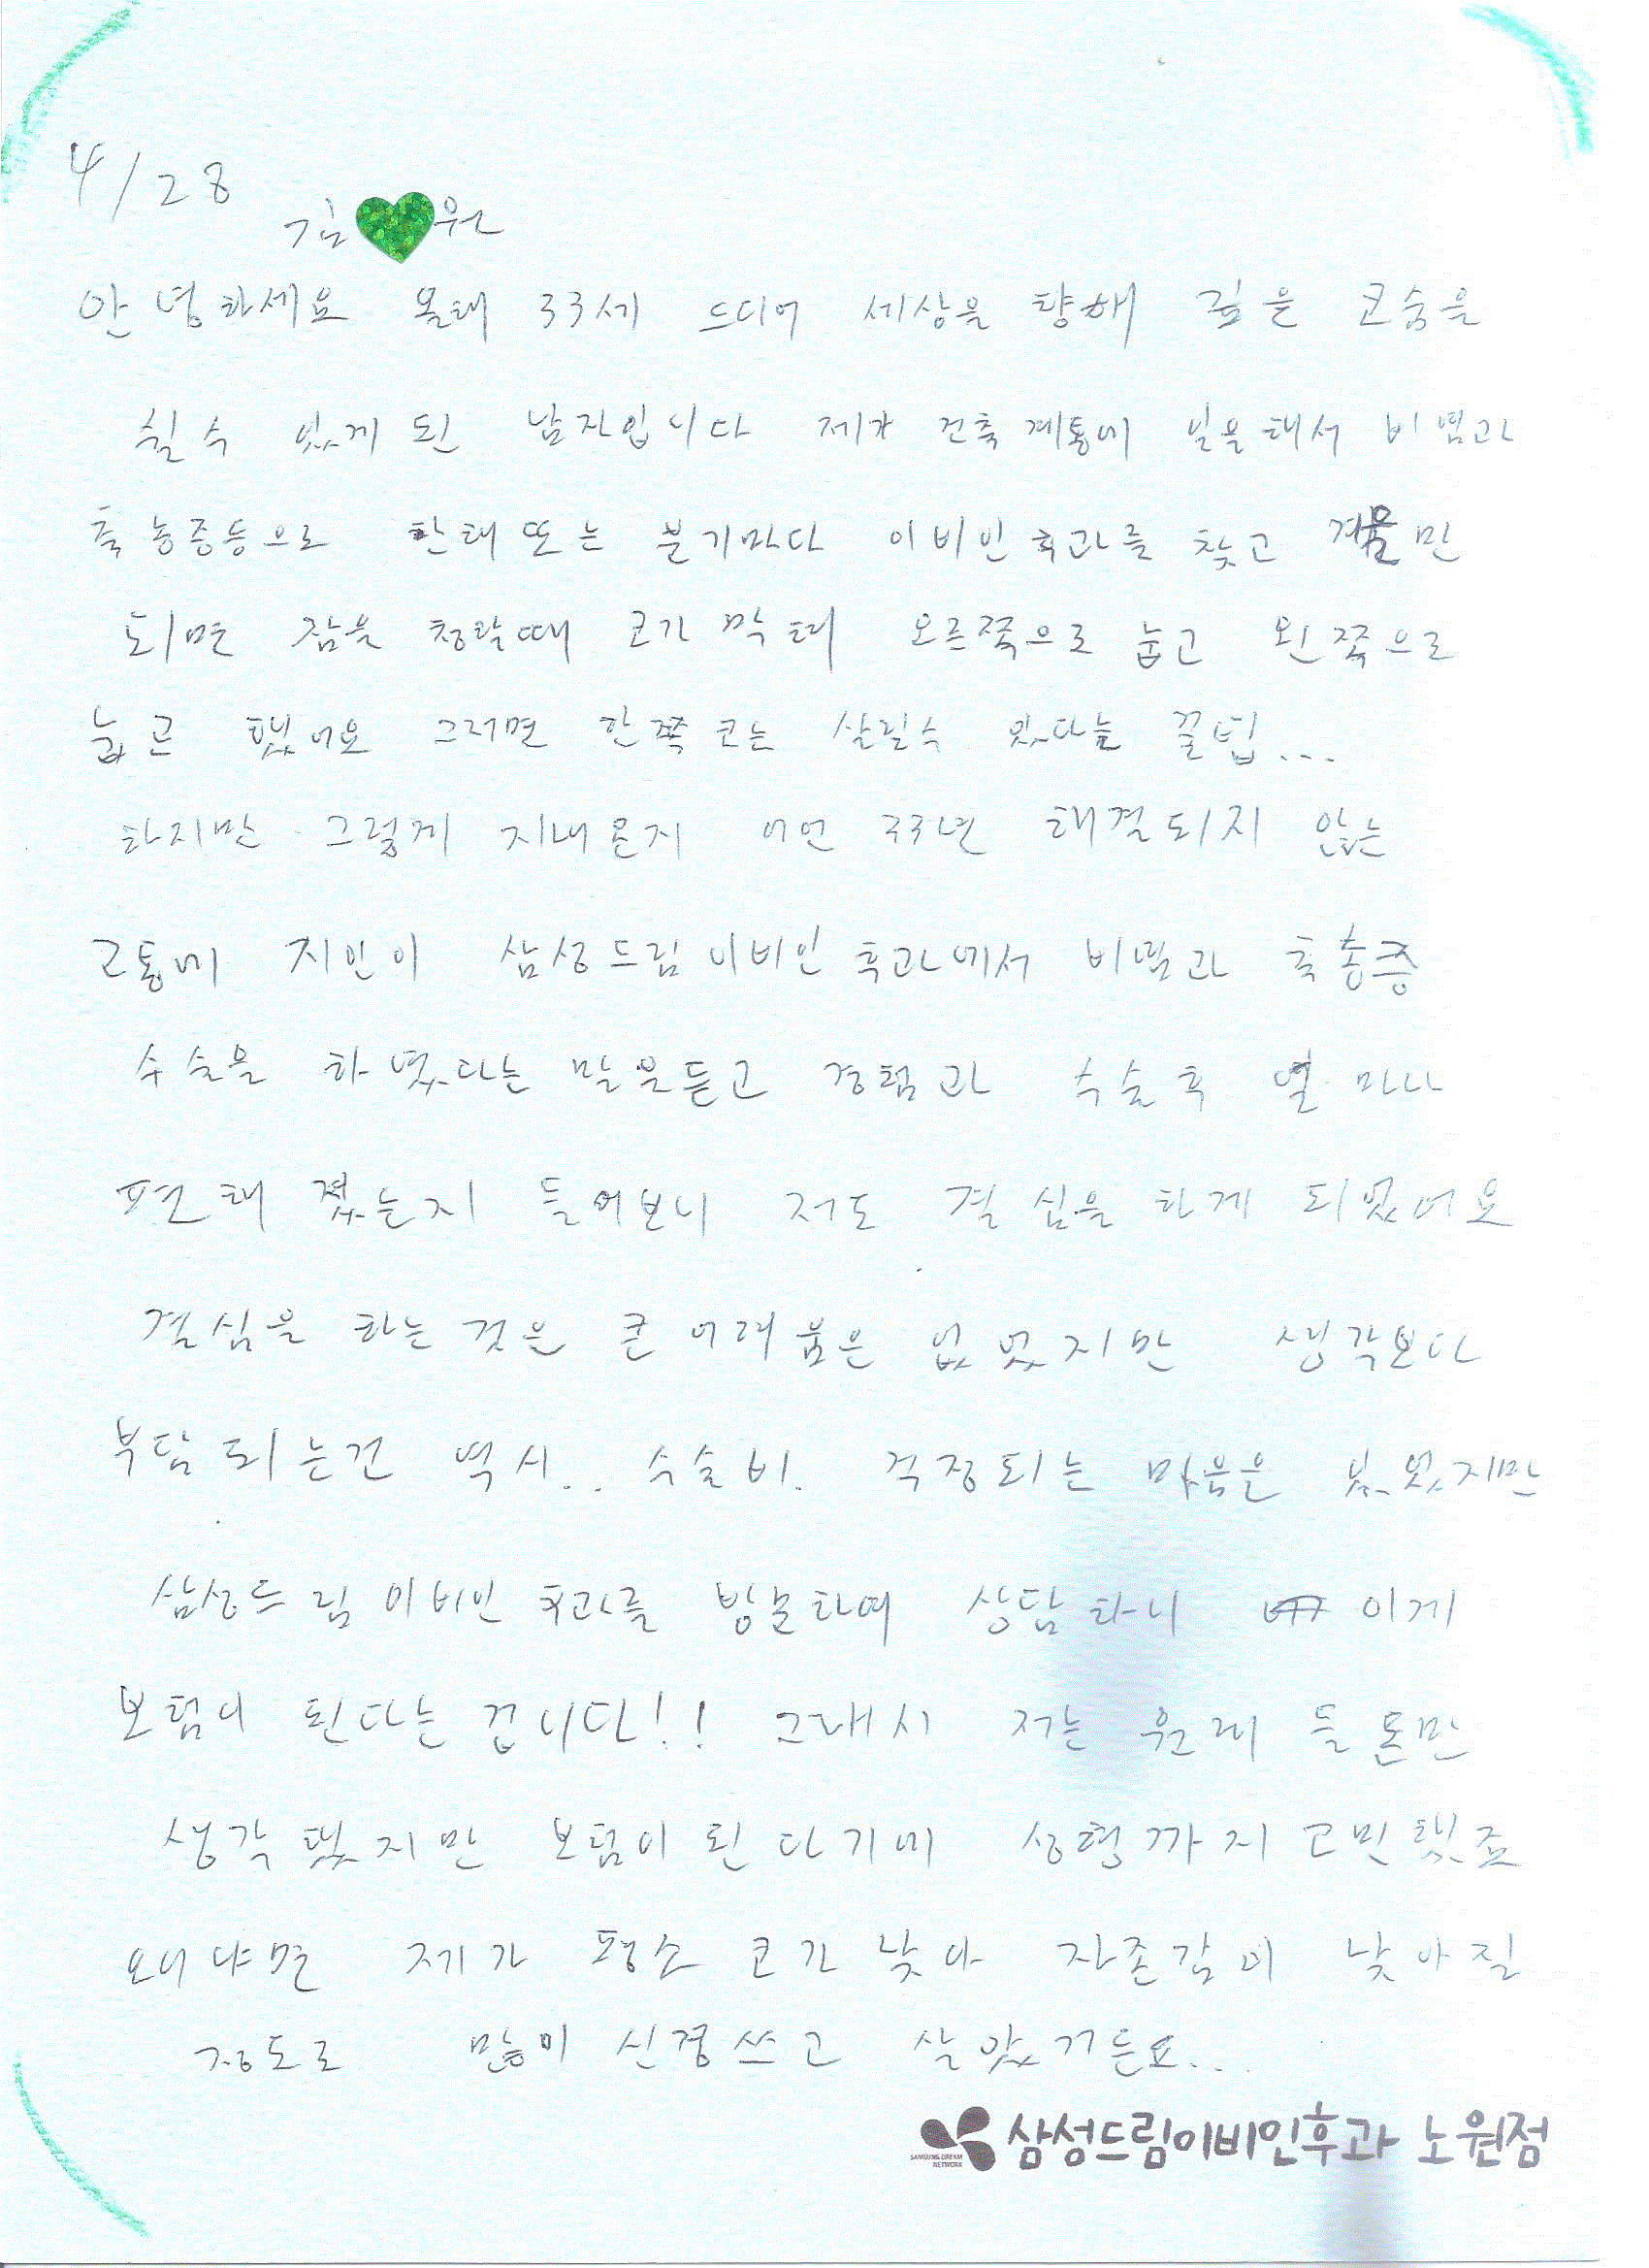 4/28
김 원
안녕하세요 올해 33세 드디어 세상을 향해 깊은 코숨을
쉴수 있게 된 남자입니다 제가 건축계통에 일을해서 비염과
축농증등으로 한해 또는 분기마다 이비인후과를 찾고 겨울만
되면 잠을 청할때 코가 막혀 오른쪽으로 눕고 왼쪽으로
눕고 했어요 그러면 한쪽 코는 살릴수 있다는 꿀팁...
하지만 그렇게 지내온지 어언 33년 해결되지 않는
고통에 지인이 삼성드림이비인후과에서 비염과 축농증
수술을 하였다는 말을듣고 경험과 수술후 얼마나
편해 졌는지 들어보니 저도 결심을 하게 되었어요
결심을 하는것은 큰 어려움은 없었지만 생각보다
부담되는건 역시.. 수술비. 걱정되는 마음은 있었지만
삼성드림이비인후과를 방문하여 상담하니 이게
보험이 된다는 겁니다!! 그래서 저는 원래 들 돈만
생각했지만 보험이 된다기에 성형까지 고민했죠
왜냐면 제가 평소 코가 낮아 자존감이 낮아질
정도로 많이 신경쓰고 살았거든요...
삼성드림이비인후과 노원점
SAMSUNG DREAM
NETWORK